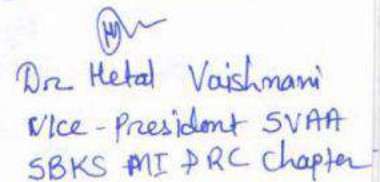 Dr Hetal Vaishnani
Vice-President SVAA
SBKS MI DRC Chapter